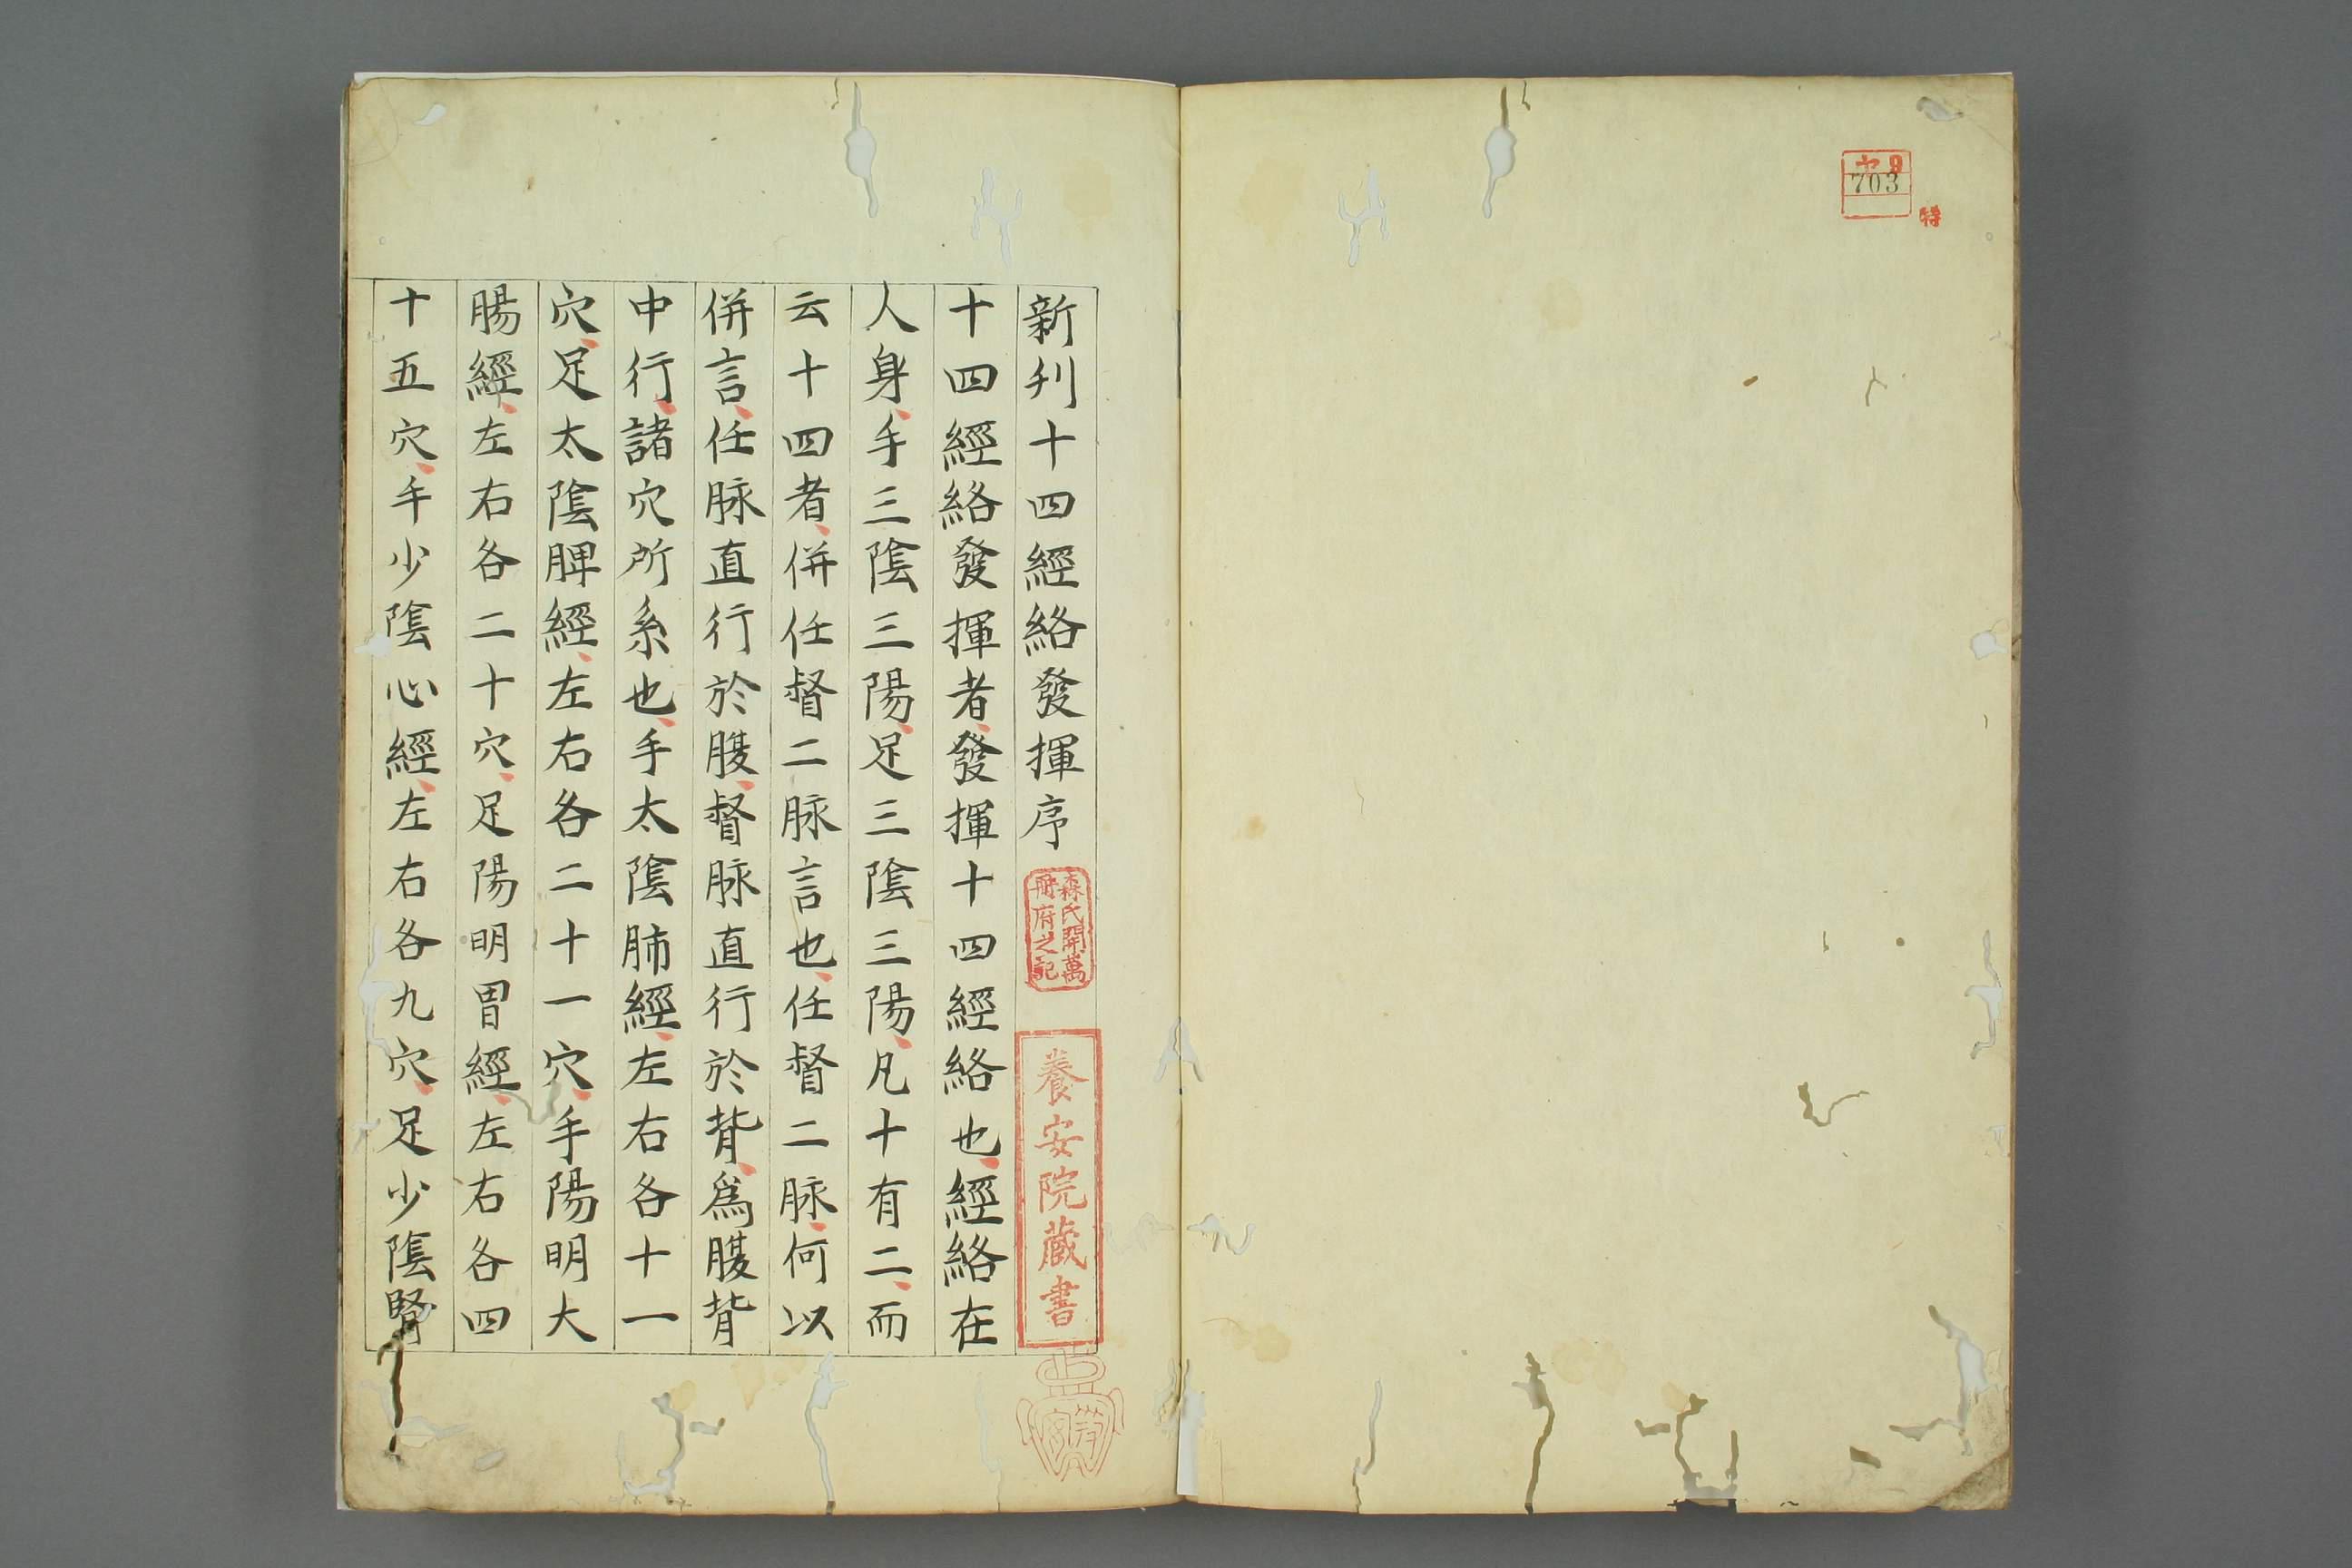 ヤ9
703
特
新刋十四經絡發揮序
森氏開萬
冊府之記
養安院藏書
十四經絡發揮者發揮十四經絡也經絡在
人身手三陰三陽足三陰三陽凡十有二而
云十四者併任督二脉言也任督二脉何以
併言任脉直行於腹督脉直行於背爲腹背
中行諸穴所系也手太陰肺經左右各十一
穴足太陰脾經左右各二十一穴手陽明大
腸經左右各二十穴足陽明胃經左右各四
十五穴手少陰心經左右各九穴足少陰腎